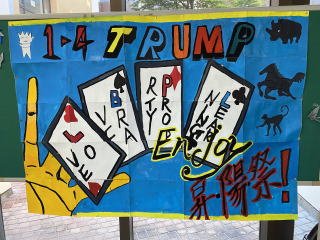 1-4 TRUMP
LOVE
BRAVE
Enjoy
昇陽祭!